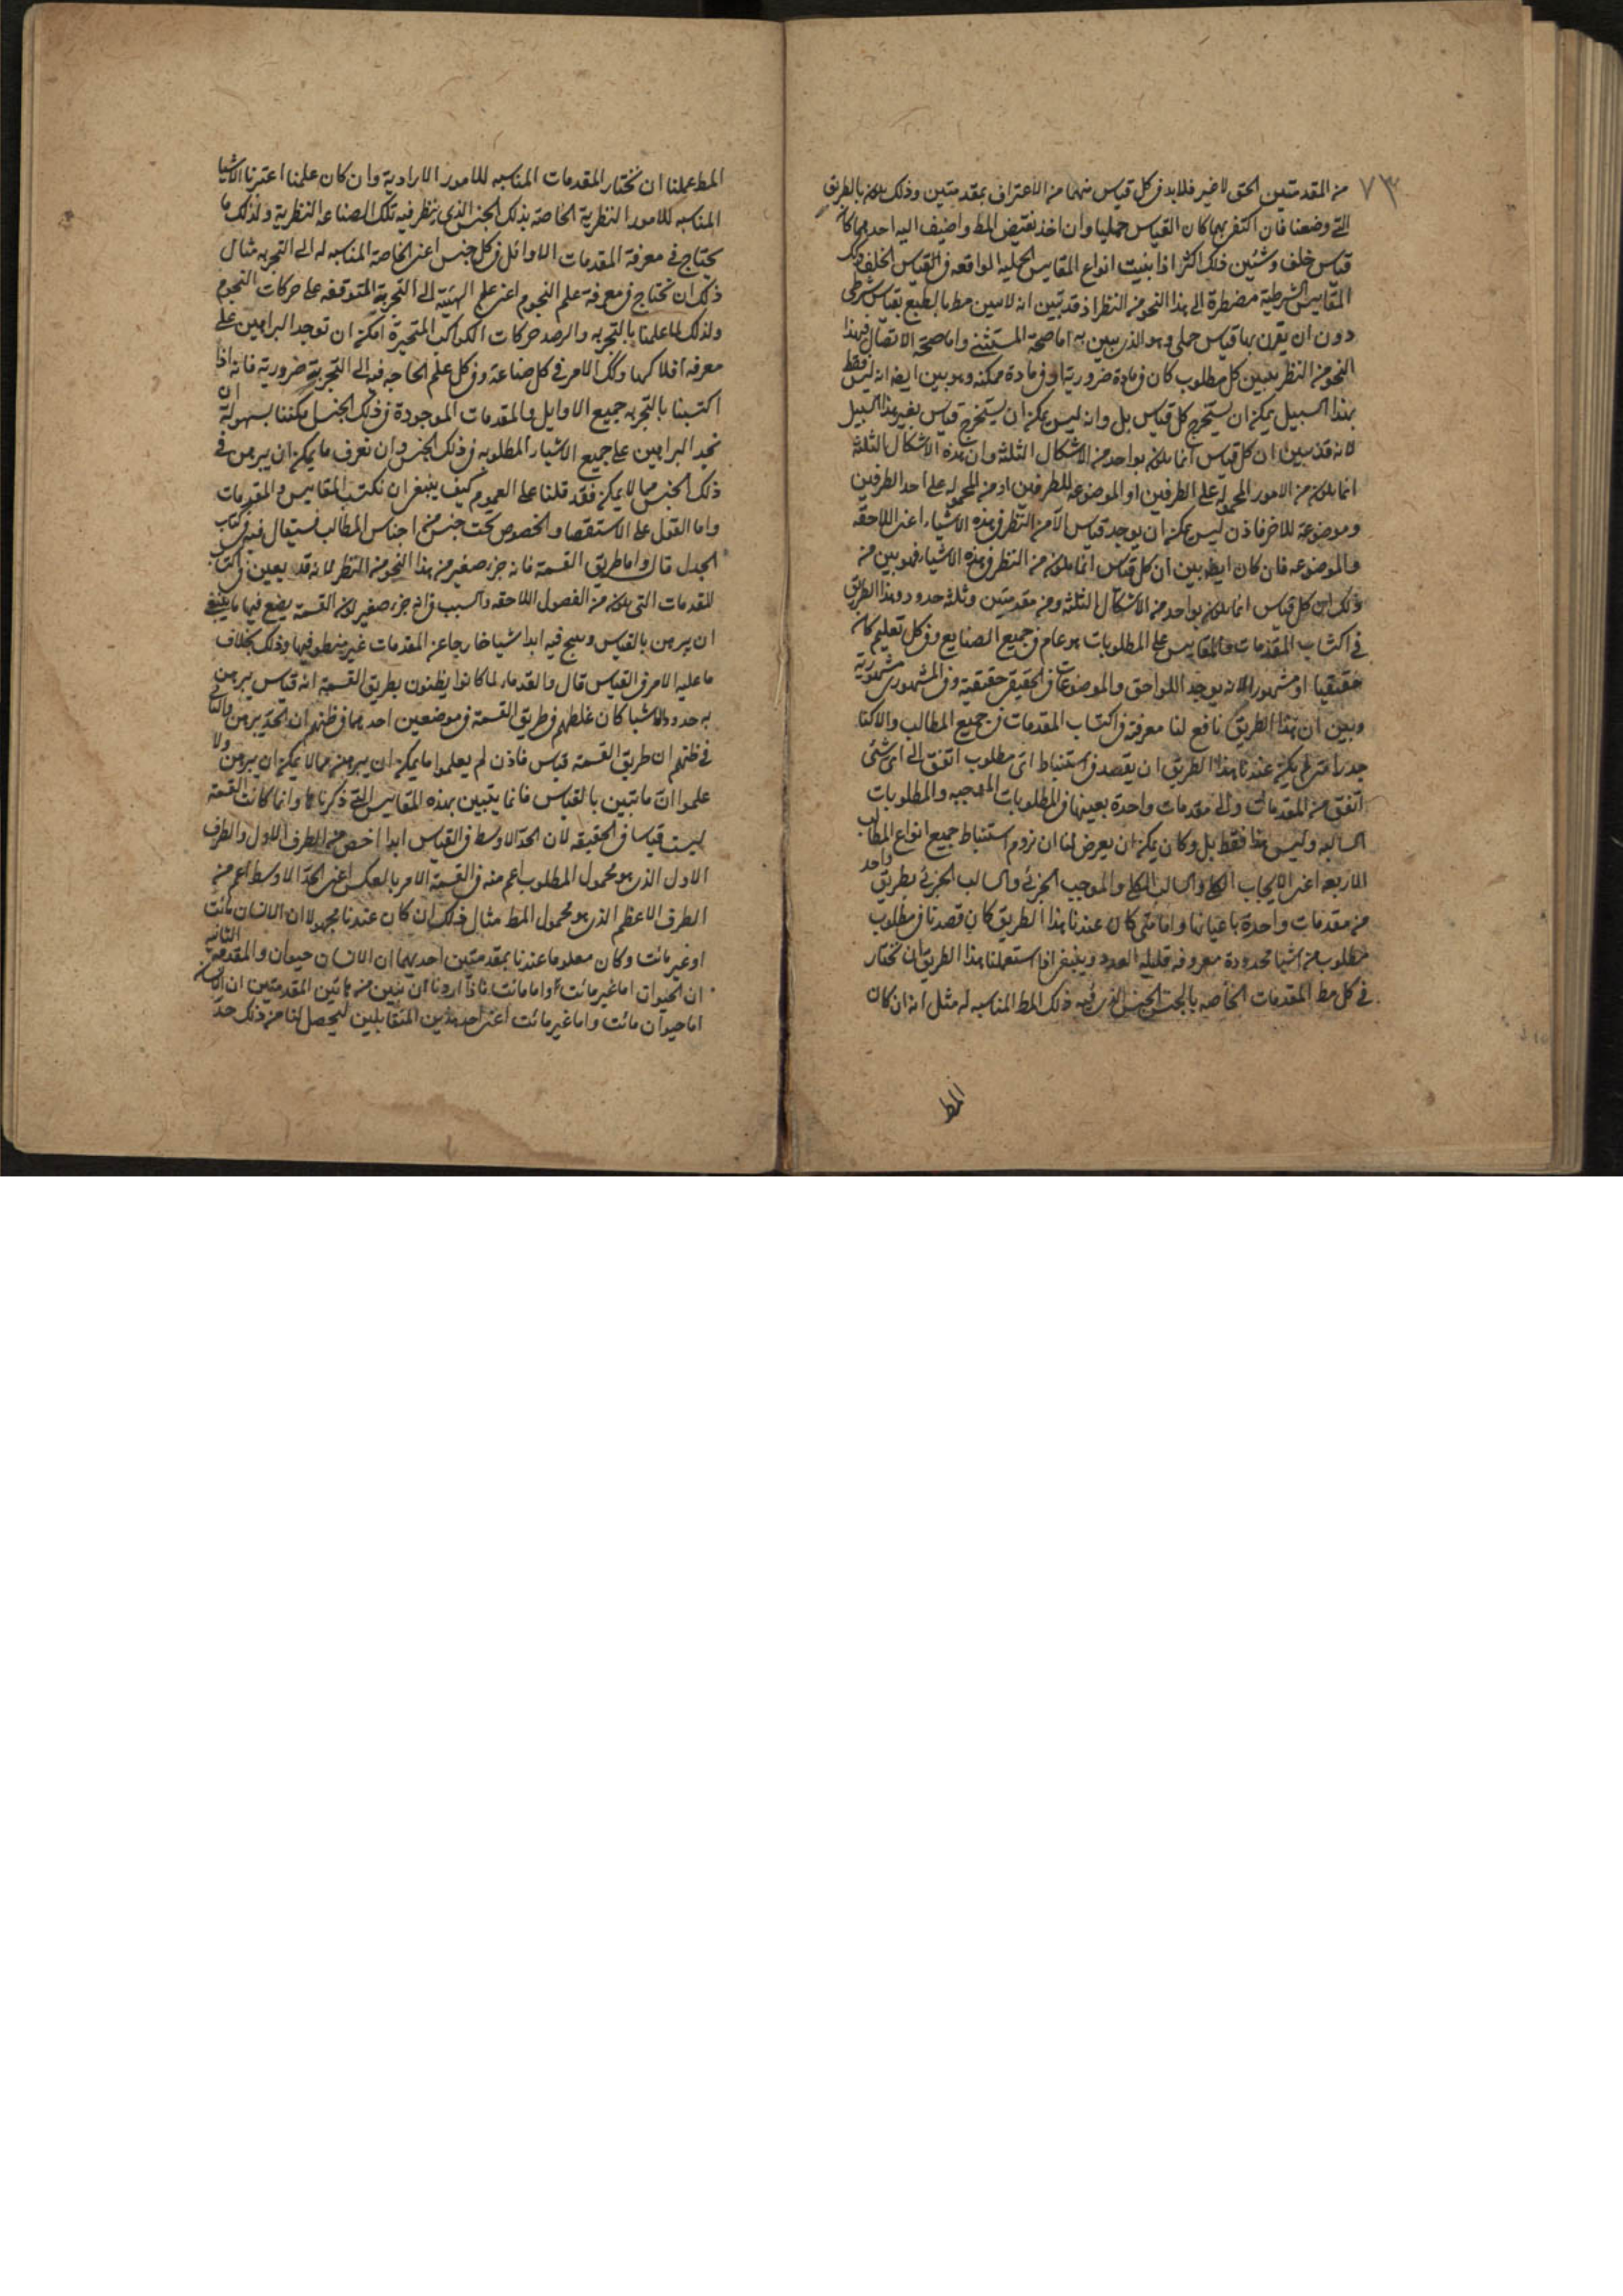 ٧٣
من المقدمتين الحق لا غير فلا بد فى كل قياس منهما من الاعتراف بمقدمتين وذلك يكون بالطريق
التى وضعنا فان اكتفى بهما كان القياس حمليا وان اخذ نقيض المط واضيف اليه احدهما كان
قياس خلف وستبين ذلك اكثر اذا بنيت انواع المقاييس الحملية الواقعه فى القياس الخلف وكك
المقاييس الشرطية مضطرة الى هذا النحو من النظر اذ قد تبين انه لا يبين مط بالطبع بقياس شرطى
دون ان يقرن بها قياس حملى وهو الذى يبين به اما صحة المستثنى واما صحة الاتصال فبهذا
النحو من النظر يتبين كل مطلوب كان فى مادة ضرورية او فى مادة ممكنه وهو بين ايضا انه ليس فقط
بهذا السبيل يمكن ان يستخرج كل قياس بل وانه ليس يمكن ان يستخرج قياس بغير هذا السبيل
لانه قد تبين ان كل قياس انما يكون بواحد من الاشكال الثلثة وان هذه الاشكال الثلثة
انما يكون من الامور المحموله على الطرفين او الموضوعه للطرفين او من المحموله على احد الطرفين
وموضوعة للاخر فاذن ليس يمكن ان يوجد قياس الا من النظر فى هذه الاشياء اعنى اللاحقه
والموضوعه فان كان ايضا بين ان كل قياس انما يكون من النظر فى هذه الاشياء فهو بين من
ذلك ان كل قياس انما يكون بواحد من الاشكال الثلثة ومن مقدمتين وثلثة حدود وهذا الطريق
فى اكتساب المقدمات والمقاييس على المطلوبات هو عام فى جميع الصنايع وفى كل تعليم كان
حقيقيا او مشهورا لانه يوجد اللواحق والموضوعات فى الحقيقى حقيقية وفى المشهورى مشهورية
وبين ان هذا الطريق نافع لنا معرفته فى اكتساب المقدمات فى جميع المطالب والا كنا
جدرا متى لم يكن عندنا هذا الطريق ان يقصد فى استنباط اى مطلوب اتفق الى اى شئ
اتفق من المقدمات والى مقدمات واحدة بعينها فى المطلوبات الموجبه والمطلوبات
السالبه وليس هذا فقط بل وكان يمكن ان يعرض لنا ان نروم استنباط جميع انواع المطالب
الاربعه اعنى الايجاب الكلى والسالب الكلى والموجب الجزئى والسالب الجزئى بطريق واحد
من مقدمات واحدة باعيانها واما متى كان عندنا هذا الطريق كان قصدنا فى مطلوب
مطلوب من اشيا محدودة معروفه قليله العدد وينبغى اذا استعملنا هذا الطريق ان نختار
فى كل مط المقدمات الخاصه بالجنس الذى فيه ذلك المط المناسبه له مثل انه ان كان
المط
المط عملنا ان نختار المقدمات المناسبه للامور الارادية وان كان علمنا اعتبرنا الاشيا
المناسبه للامور النظرية الخاصة بذلك الجنس الذى ينظر فيه تلك الصناعه النظرية ولذلك ما
يحتاج فى معرفة المقدمات الاوائل فى كل جنس اعنى الخاصة المناسبه له الى التجربه مثال
ذلك ان نحتاج فى معرفة علم النجوم اعنى علم الهيئة الى التجربة المتوقفه على حركات النجوم
ولذلك لما علمنا بالتجربه والرصد حركات الكواكب المتحيرة امكن ان توجد البراهين على
معرفه افلاكها وكك الامر فى كل صناعة وفى كل علم الحاجه فيه الى التجربة ضرورية فانه اذا
اكتسبنا بالتجربه جميع الاوايل والمقدمات الموجودة فى ذلك الجنس يمكننا بسهولة ان
نجد البراهين على جميع الاشياء المطلوبه فى ذلك الجنس وان نعرف ما يمكن ان يبرهن فى
ذلك الجنس مما لا يمكن فقد قلنا على العموم كيف ينبغى ان نكتسب المقاييس والمقدمات
واما القول على الاستقصا والخصوص تحت جنس من اجناس المطالب فسيقال فيه فى كتاب
الجدل قال واما طريق القسمة فانه جزء صغير من هذا النحو من النظر لانه قد يعين فى اكتساب
المقدمات التى يكون من الفصول اللاحقه والسبب فى انه جزء صغير لان القسمة يضع فيها ما ينبغى
ان يبرهن بالقياس وينتج فيه ابدا شيا خارجا عن المقدمات غير منطو فيها وذلك بخلاف
ما عليه الامر فى القياس قال والقدماء لما كانوا يظنون بطريق القسمة انه قياس يبرهن
به حدود الاشيا كان غلطهم فى طريق القسمة فى موضعين احدهما فى ظنهم ان الحد يبرهن والثانى
فى ظنهم ان طريق القسمة قياس فاذن لم يعلموا ما يمكن ان يبرهن مما لا يمكن ان يبرهن ولا
علموا ان ما تبين بالقياس فانما يتبين بهذه المقاييس التى ذكرناها وانما كانت القسمة
ليست قياسا فى الحقيقه لان الحد الاوسط فى القياس ابدا اخص من الطرف الاول والطرف
الاول الذى هو محمول المطلوب اعم منه فى القسمة الامر بالعكس اعنى الحد الاوسط اعم من
الطرف الاعظم الذى هو محمول المط مثال ذلك ان كان عندنا مجهولا ان الانسان مائت
او غير مائت وكان معلوما عندنا بمقدمتين احديهما ان الانسان حيوان والمقدمة الثانيه
ان الحيوان اما غير مائت واما مائت فاذا اردنا ان نبين من هاتين المقدمتين ان الانسان
اما حيوان مائت واما غير مائت اعنى احد هذين المتقابلين ليحصل لنا من ذلك حد